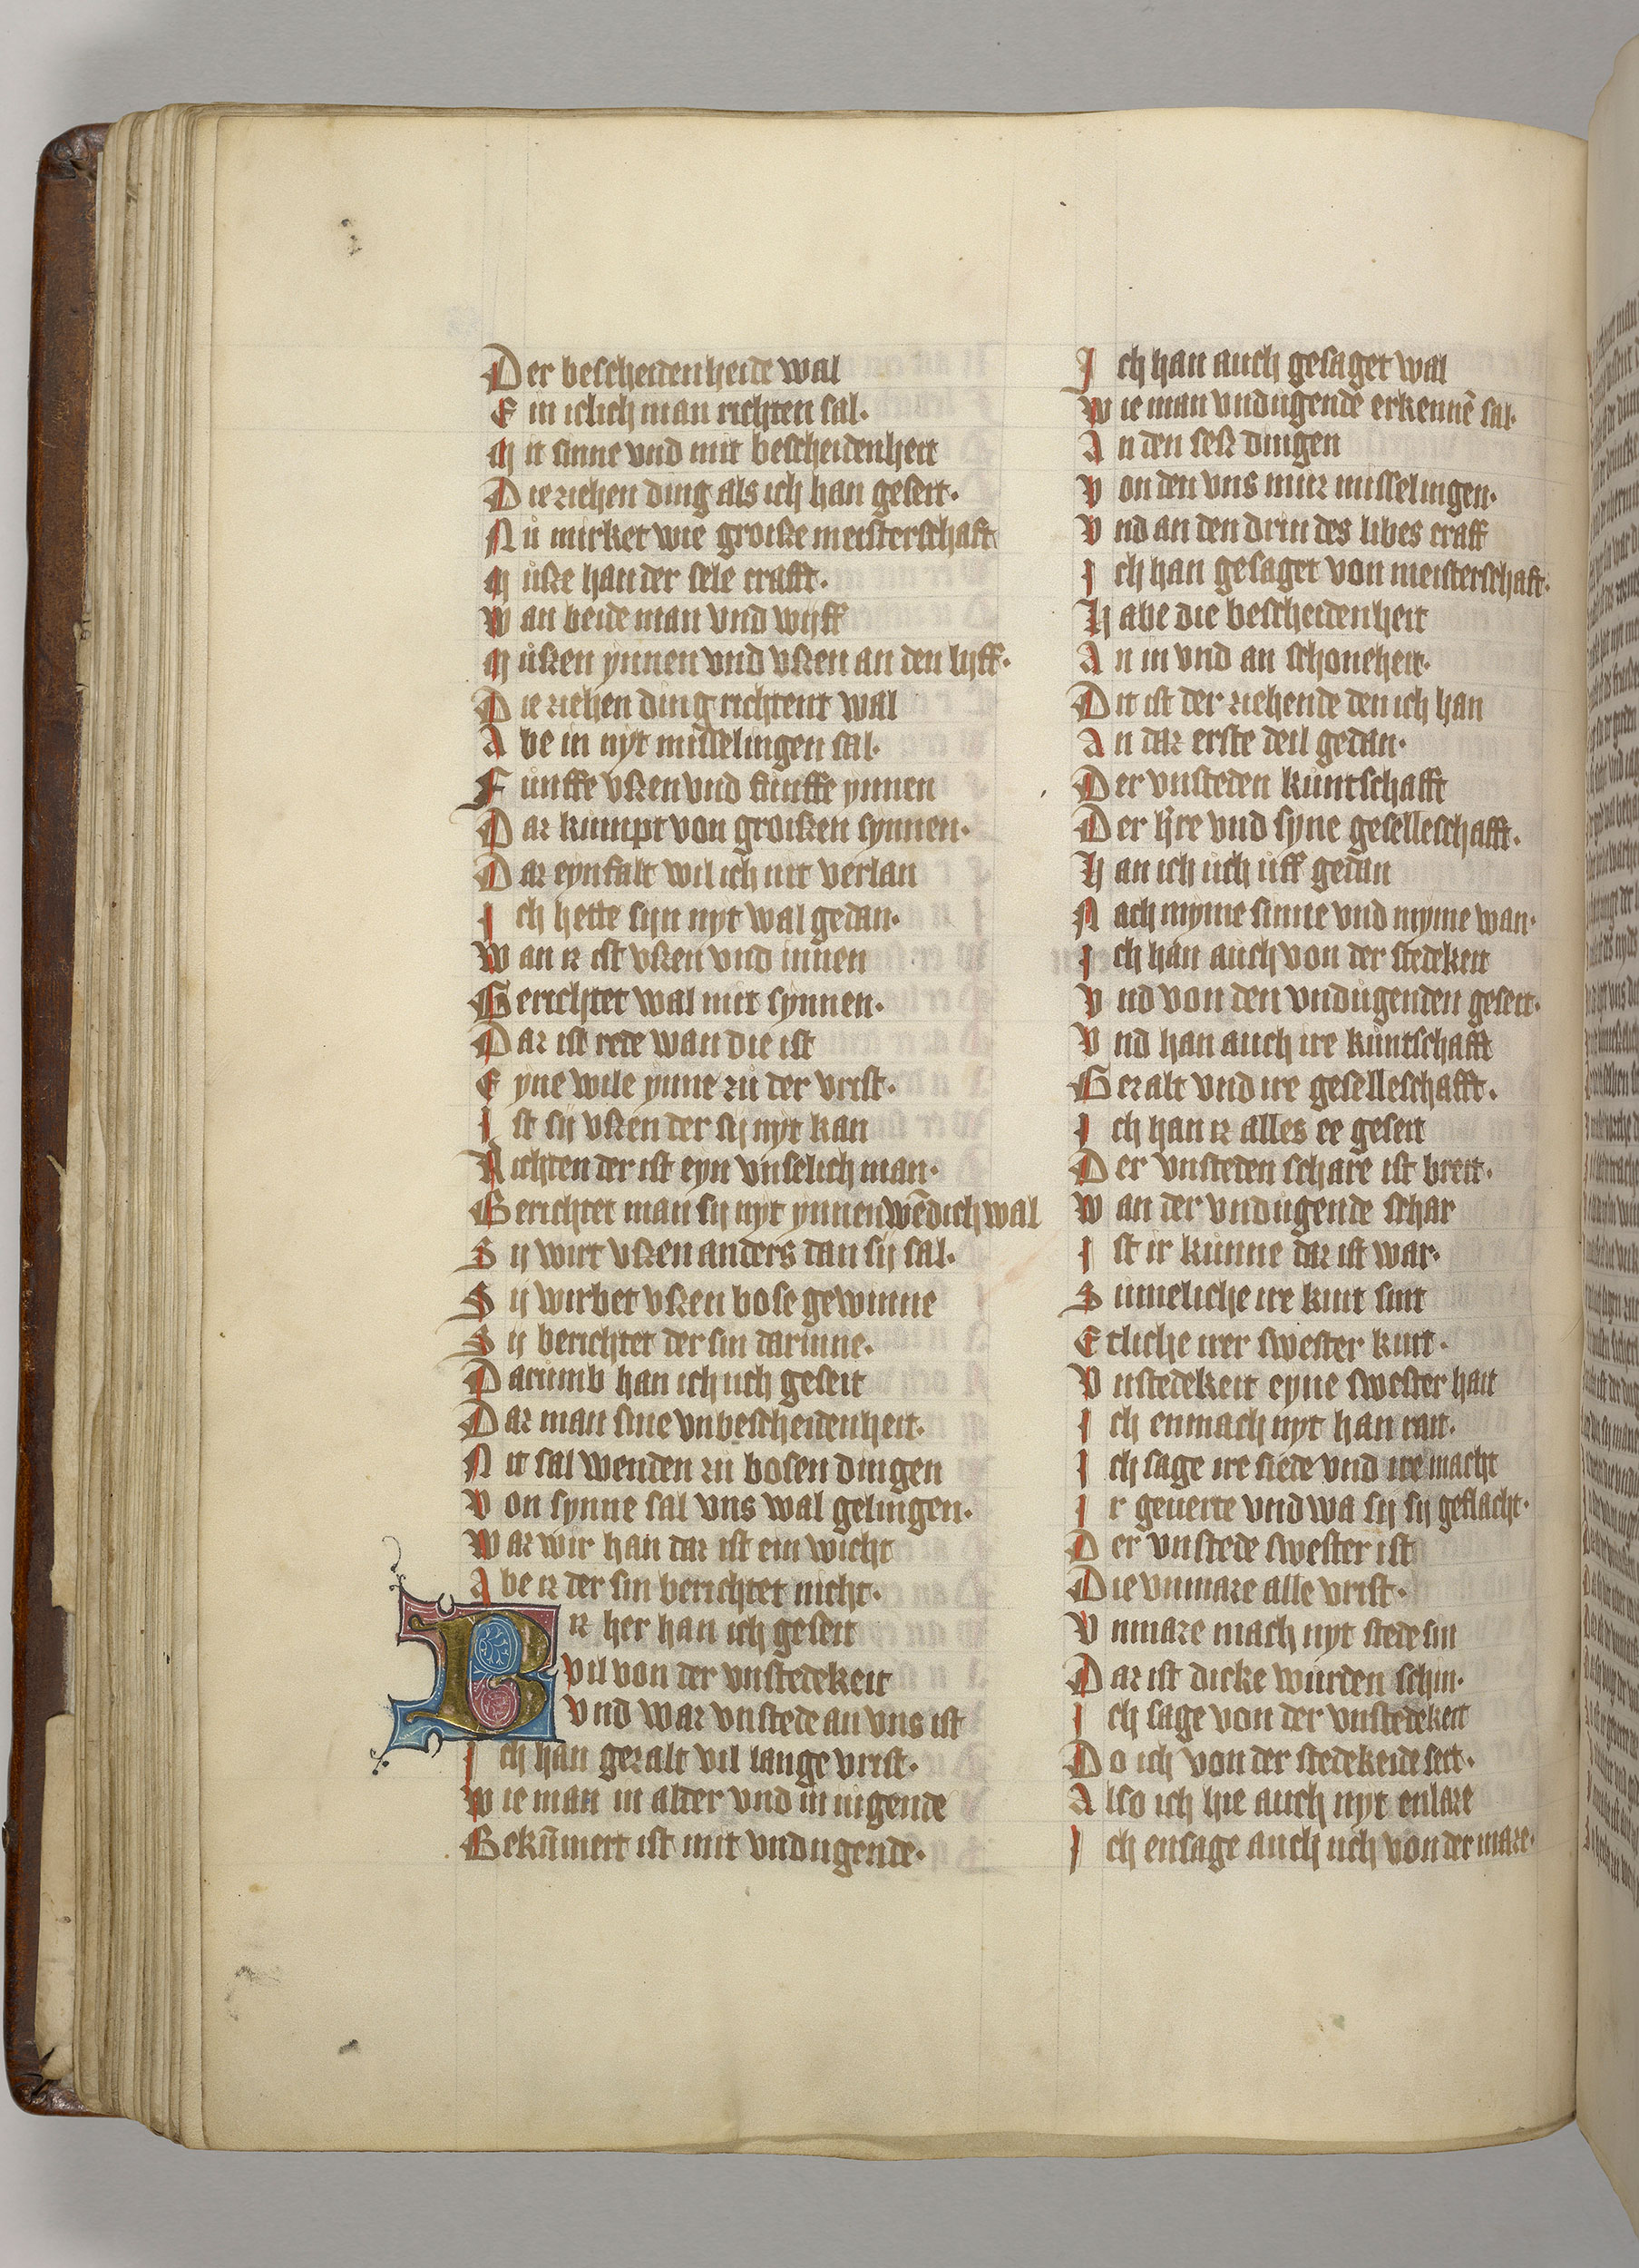 Der bescheidenheide wal
Ein iclich man richten sal.
Mit sinne vnd mit bescheidenheit
Die ziehen ding als ich han geseit.
Nů mirket wie groiße meisterschaft
Můße han der sele crafft.
Wan beide man vnd wijff
Můßen ynnen vnd vßen an den lijff.
Die ziehen ding richtent wal
Abe in nyt misselingen sal.
Fůnffe vßen vnd fünffe ynnen
Daz kumpt von groißen synnen.
Daz eynfalt wil ich nit verlan
Ich hette sijn nyt wal gedan.
Wan iz ist vßen vnd innen
Gerichtet wal mit synnen.
Daz ist rede wan die ist
Eyne wile ynne zů der vrist.
Ist sij vßen der sij nyt kan
Richten der ist eyn vnselich man.
Gerichtet man sij nyt ynnenwēdich wal
Sij wirt vßen anders dan sij sal.
Sij wirbet vßen bose gewinne
Sij berichtet der sin darinne.
Darůmb han ich uch geseit
Daz man sine vnbescheidenheit.
Nit sal wenden zů bosen dingen
Von synne sal vns wal gelingen.
Waz wir han daz ist ein wicht
Abe iz der sin berichtet nicht.
Biz her han ich geseit
vil von der vnstedekeit
vnd waz vnstede an vns ist
Ich han gezalt vil lange vrist.
Wie man in alter vnd in iugende
Bekūmert ist mit vndugende.
Ich han auch gesaget wal
Wie man vndugende erkennē sal.
An den seß dingen
Von den vns můz misselingen.
Vnd an den drin des libes craff
Ich han gesaget von meisterschaft.
Habe die bescheidenheit
An in vnd an schoneheit.
Dit ist der ziehende den ich han
An daz erste deil gedan.
Der vnsteden kůntschafft
Der h̄re vnd sijne geselleschafft.
Han ich ůch ůff gedan
Nach myme sinne vnd myme wan.
Ich han auch von der stedekeit
Vnd von den vndugenden geseit.
Vnd han auch ire kůntschafft
Gezalt vnd ire geselleschafft.
Ich han iz alles ee geseit
Der vnsteden schare ist breit.
Wan der vndugende schar
Ist ir kůnne daz ist war.
Sumeliche ire kint sint
Etliche irer swester kint.
Vnstedekeit eyne swester hait
Ich enmach nyt han rait.
Ich sage ire siede vnd ire macht
Ir geuerte vnd wa sij sij geslacht.
Der vnstede swester ist
Die vnmaze alle vrist.
Vnmaze mach nyt stede sin
Daz ist dicke wurden schin.
Ich sage von der vnstedekeit
Do ich von der stedekeide seit.
Also ich hie auch nyt enlaze
Ich ensage auch uch von der maze.